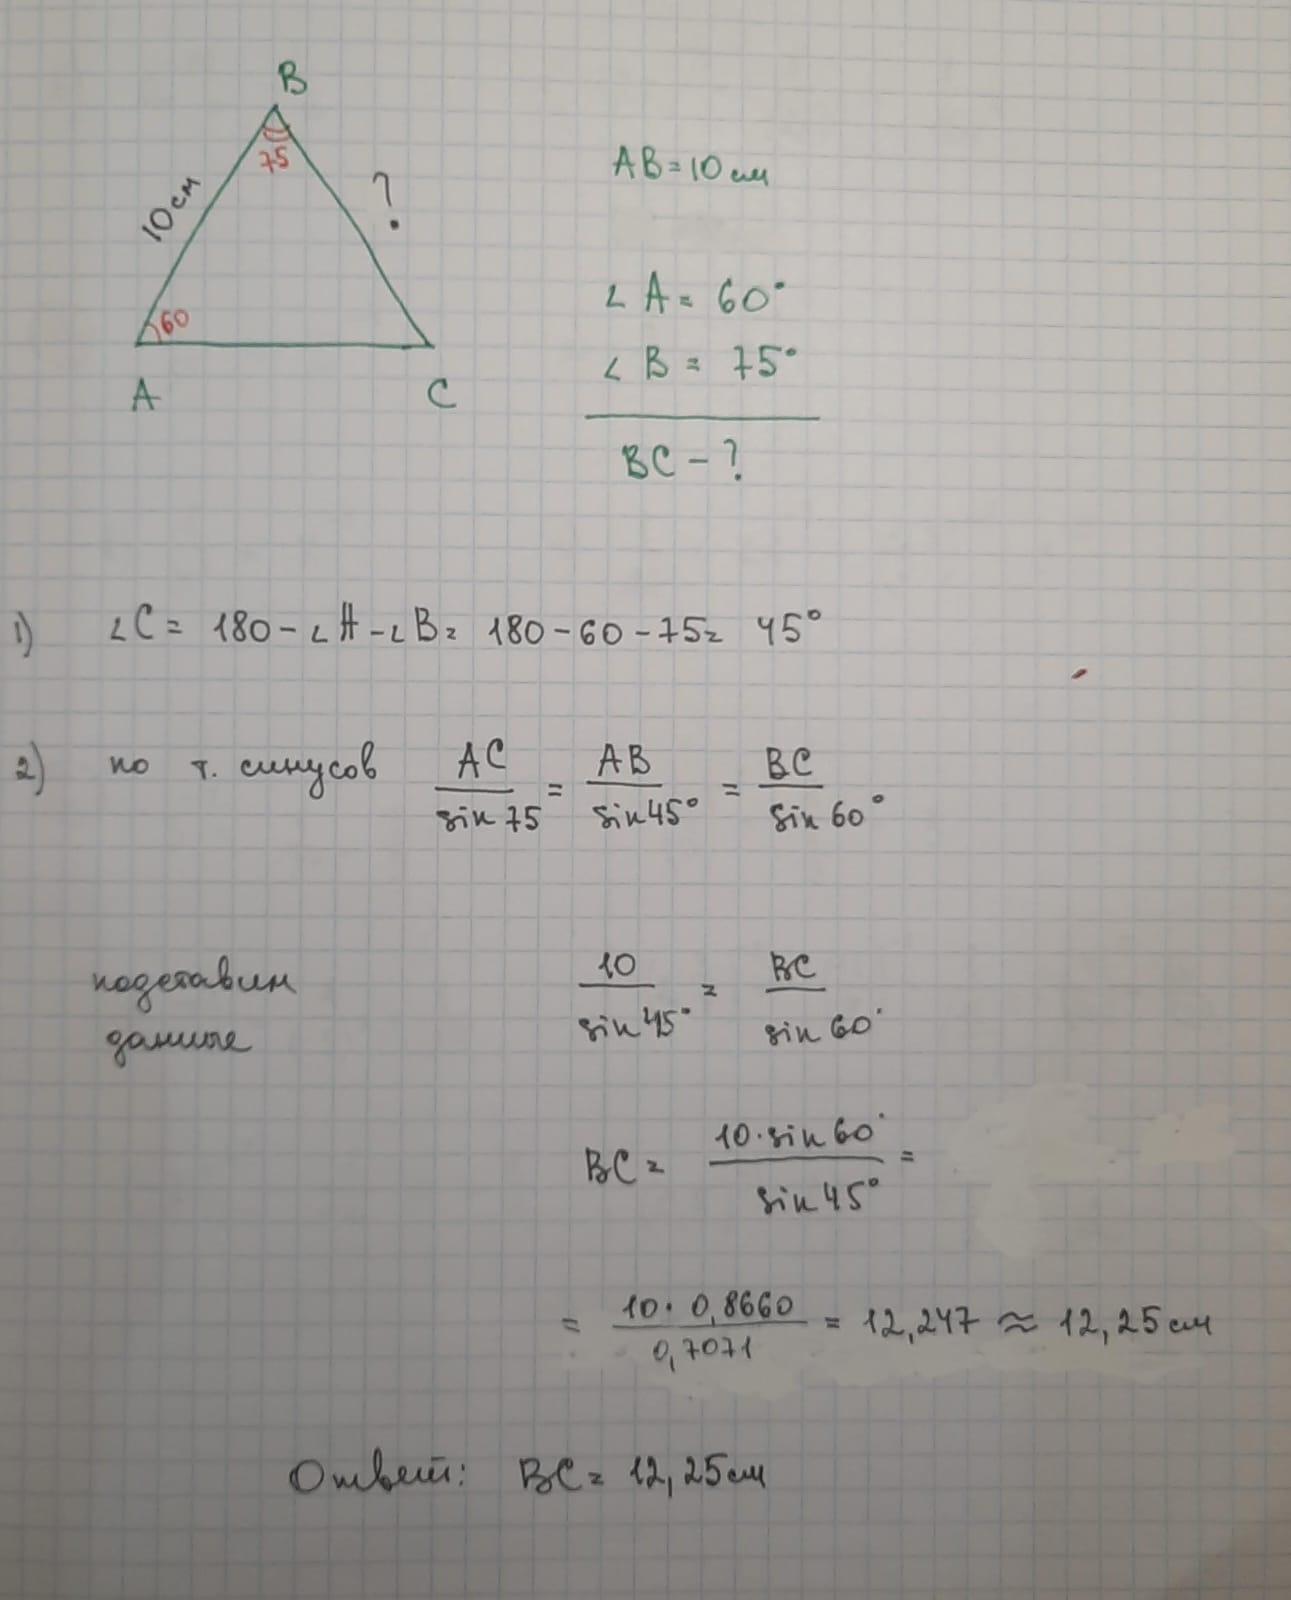 B
75
10 см
?
60
A
C
AB = 10 см
∠ A = 60°
∠ B = 75°
BC - ?
1) ∠C = 180 - ∠A - ∠B = 180 - 60 - 75 = 45°
2) по т. синусов AC/sin 75 = AB/sin 45° = BC/sin 60°
подставим
данные
10/sin 45° = BC/sin 60°
BC = 10 · sin 60°/sin 45° =
= 10 · 0,8660/0,7071 = 12,247 ≈ 12,25 см
Ответ: BC = 12,25 см